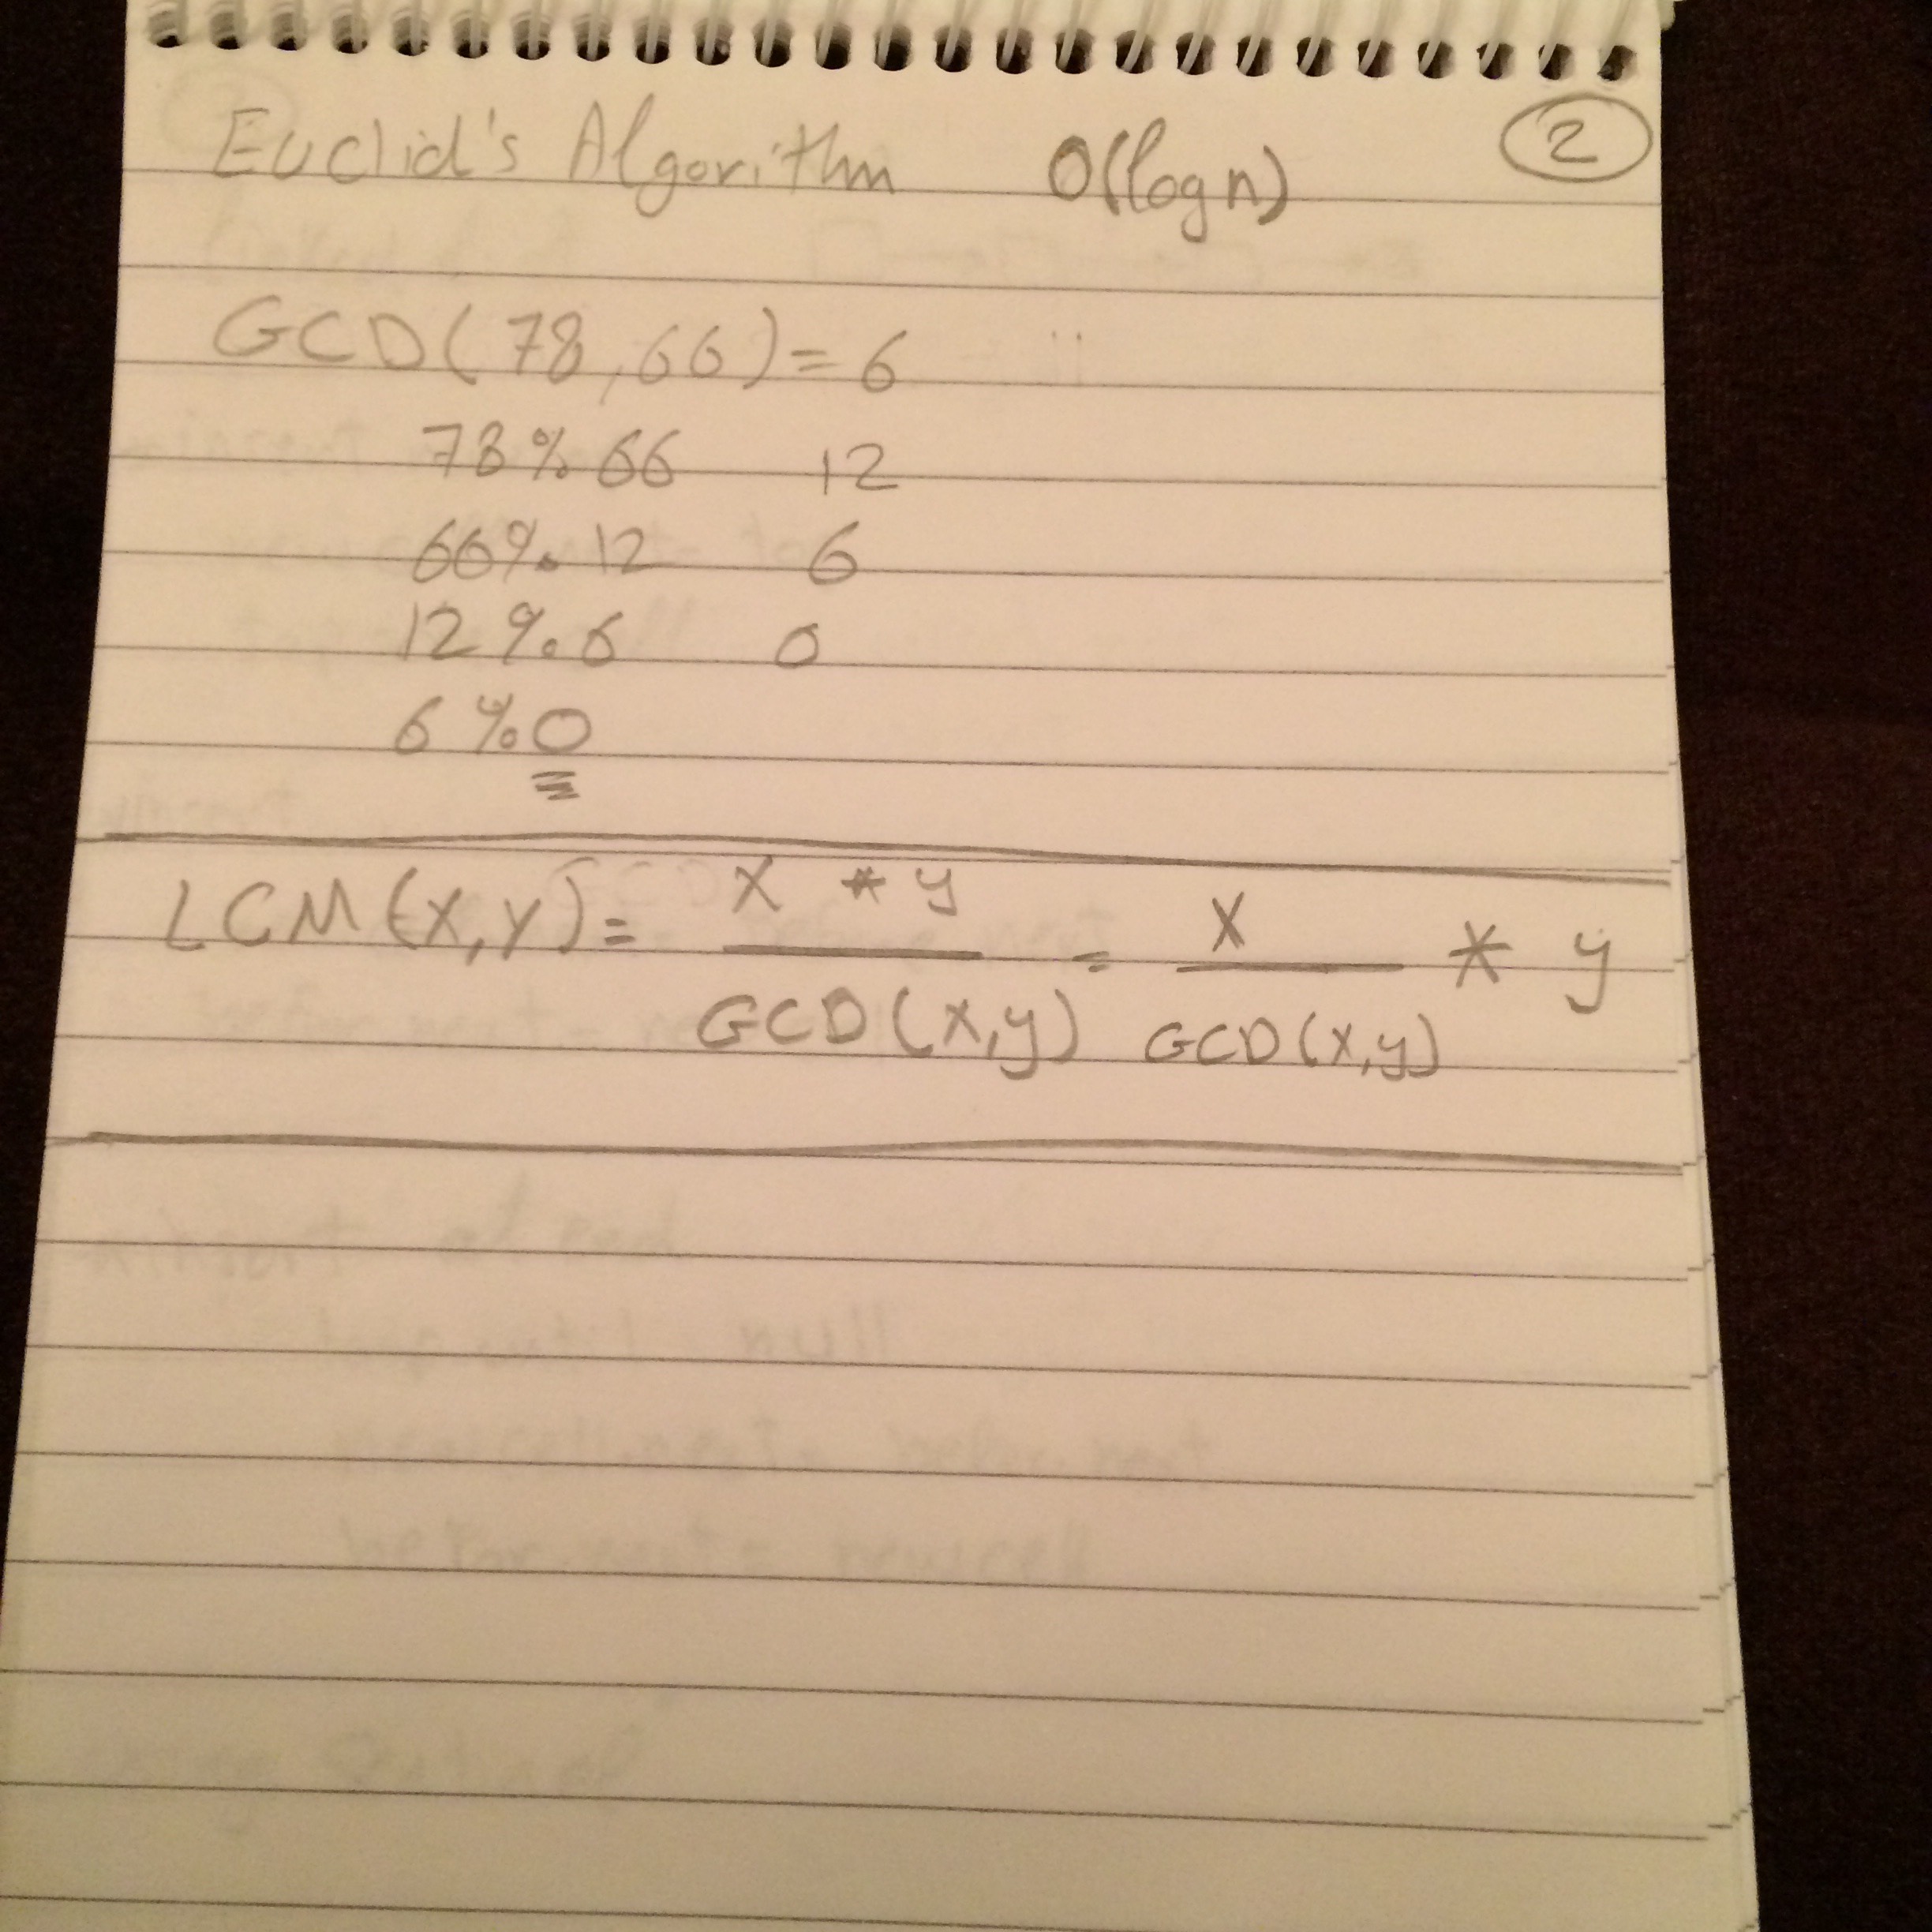 Euclid's Algorithm O(log n) 2
GCD(78,66)=6
78%66 12
66%12 6
12%6 0
6%0
LCM(X,Y)= X * y / GCD(X,y) = X / GCD(X,y) * y